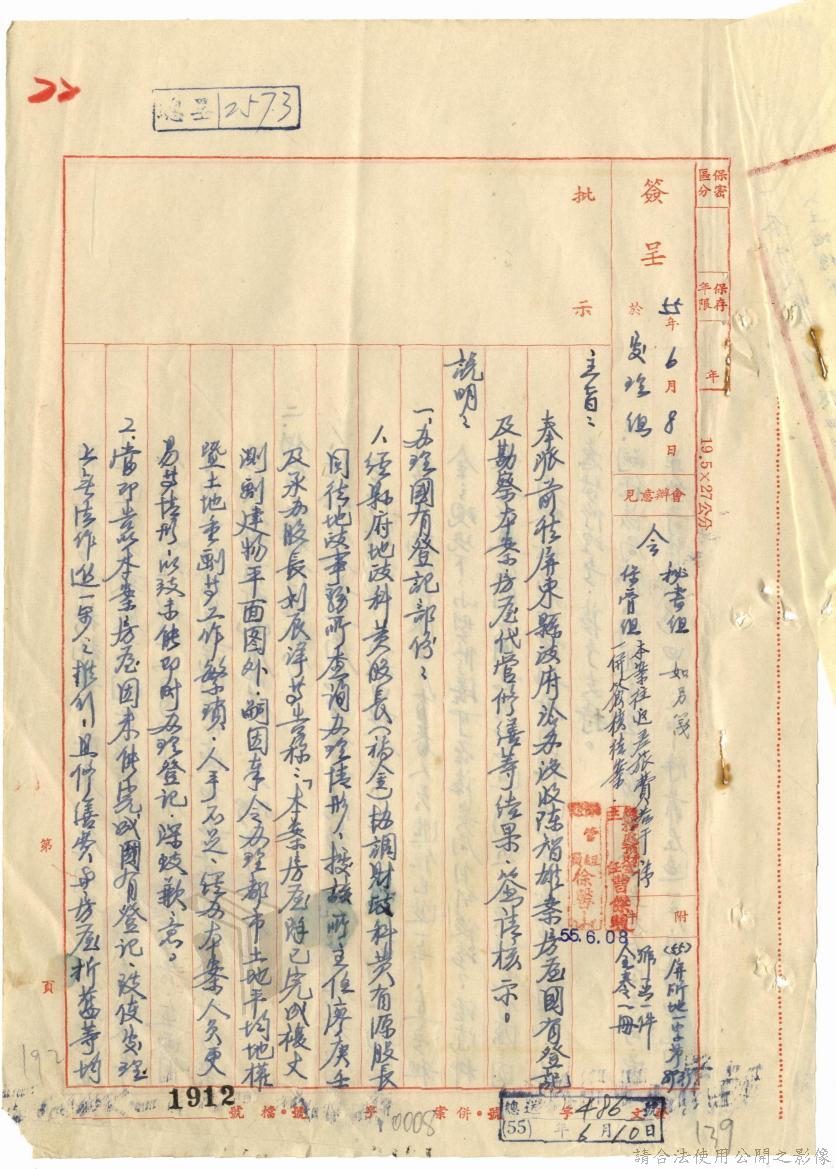 總呈 2573
保密區分
保存年限
年
19.5×27公分
簽呈
55年6月8日
於 處理組
會辦意見
會 秘書組 如另簽
保管組 本案往返差旅費若干請一併簽核結案
附件
(55)屏所地一字第
號函一件
全卷一冊
55.6.08
批示
主旨：
奉派前往屏東縣政府洽辦沒收陳智雄案房屋國有登記
及勘察本案房屋代管修繕等結果，簽請核示。
說明：
一、辦理國有登記部份：
1.經縣府地政科黃股長（福金）協調財政科黃有源股長
同往地政事務所查詢辦理情形，據該所主任廖庚壬
及承辦股長劉辰祥等告稱：「本案房屋除已完成複丈
測劃建物平面圖外，嗣因奉令辦理都市土地平均地權
暨土地重劃等工作繁瑣，人手不足，經辦本案人員更
易等情形，以致未能即時辦理登記，深致歉意。
2.當即告以本案房屋因未供完成國有登記，致使處理
上無法作進一步之推行，且修繕費與房屋折舊等均
第 頁
檔號
1912
字 併案 號
0008
總送 文字 486 號
(55)年6月10日
139
192
請合法使用公開之影像